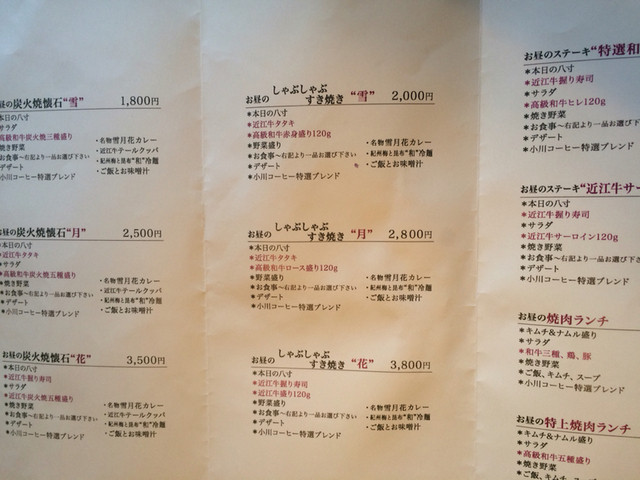 お昼の炭火焼懐石“雪” 1,800円
*本日の八寸
サラダ
*高級和牛炭火焼三種盛り
*焼き野菜
*お食事～右記より一品お選び下さい
*デザート
*小川コーヒー特選ブレンド
・名物雪月花カレー
・近江牛テールクッパ
・紀州梅と昆布“和”冷麺
・ご飯とお味噌汁
お昼の炭火焼懐石“月” 2,500円
*本日の八寸
*近江牛タタキ
*サラダ
*高級和牛炭火焼五種盛り
*焼き野菜
*お食事～右記より一品お選び下さい
*デザート
*小川コーヒー特選ブレンド
・名物雪月花カレー
・近江牛テールクッパ
・紀州梅と昆布“和”冷麺
・ご飯とお味噌汁
お昼の炭火焼懐石“花” 3,500円
*本日の八寸
*近江牛握り寿司
*サラダ
*近江牛炭火焼五種盛り
*焼き野菜
*お食事～右記より一品お選び下さい
*デザート
*小川コーヒー特選ブレンド
・名物雪月花カレー
・近江牛テールクッパ
・紀州梅と昆布“和”冷麺
・ご飯とお味噌汁
お昼の しゃぶしゃぶ
すき焼き “雪” 2,000円
*本日の八寸
*近江牛タタキ
*高級和牛赤身盛り120g
*野菜盛り
*お食事～右記より一品お選び下さい
*デザート
*小川コーヒー特選ブレンド
・名物雪月花カレー
・近江牛テールクッパ
・紀州梅と昆布“和”冷麺
・ご飯とお味噌汁
お昼の しゃぶしゃぶ
すき焼き “月” 2,800円
*本日の八寸
*近江牛タタキ
*高級和牛ロース盛り120g
*野菜盛り
*お食事～右記より一品お選び下さい
*デザート
*小川コーヒー特選ブレンド
・名物雪月花カレー
・近江牛テールクッパ
・紀州梅と昆布“和”冷麺
・ご飯とお味噌汁
お昼の しゃぶしゃぶ
すき焼き “花” 3,800円
*本日の八寸
*近江牛握り寿司
*近江牛盛り120g
*野菜盛り
*お食事～右記より一品お選び下さい
*デザート
*小川コーヒー特選ブレンド
・名物雪月花カレー
・近江牛テールクッパ
・紀州梅と昆布“和”冷麺
・ご飯とお味噌汁
お昼のステーキ“特選和
*本日の八寸
*近江牛握り寿司
*サラダ
*高級和牛ヒレ120g
*焼き野菜
*お食事～右記より一品お選び下さい
*デザート
*小川コーヒー特選ブレンド
お昼のステーキ“近江牛サー
*本日の八寸
*近江牛握り寿司
*サラダ
*近江牛サーロイン120g
*焼き野菜
*お食事～右記より一品お選び下さい
*デザート
*小川コーヒー特選ブレンド
お昼の焼肉ランチ
*キムチ&ナムル盛り
*サラダ
*和牛三種、鶏、豚
*焼き野菜
*ご飯、キムチ、スープ
*小川コーヒー特選ブレンド
お昼の特上焼肉ランチ
*キムチ&ナムル盛り
*サラダ
*高級和牛五種盛り
*焼き野菜
*ご飯、キムチ、スー